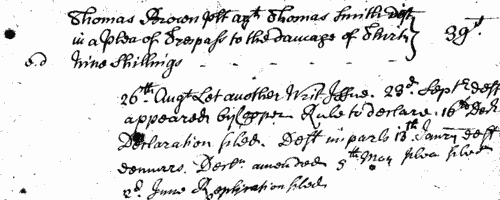 Thomas Brown plt agt Thomas Smith Deft
in a plea of Trespass to the damage of Thirty } 39s.
e.d Nine Shillings
26th. Augt Let another Writ Issue. 23d. Septr deft
appeared by Copper Rule to declare. 16th Decr.
Declaration filed. Deft in parls 13th Janry deft
demurrs. Decln amended 5th May plea filed
2d. June Replication filed